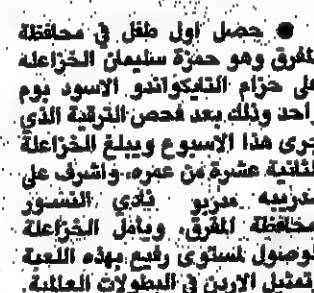 ● حصل اول طفل في محافظة
المفرق وهو حمزة سليمان الخزاعله
على حزام التايكواندو الاسود يوم
واحد وذلك بعد فحص الترقية الذي
جرى هذا الاسبوع ويبلغ الخزاعلة
الثانية عشرة من عمره، واشرف على
تدريبه مدربو نادي النسور
محافظة المفرق، ويأمل الخزاعلة
لوصول لمستوى رفيع بهذه اللعبة
بتمثيل الاردن في البطولات العالمية.